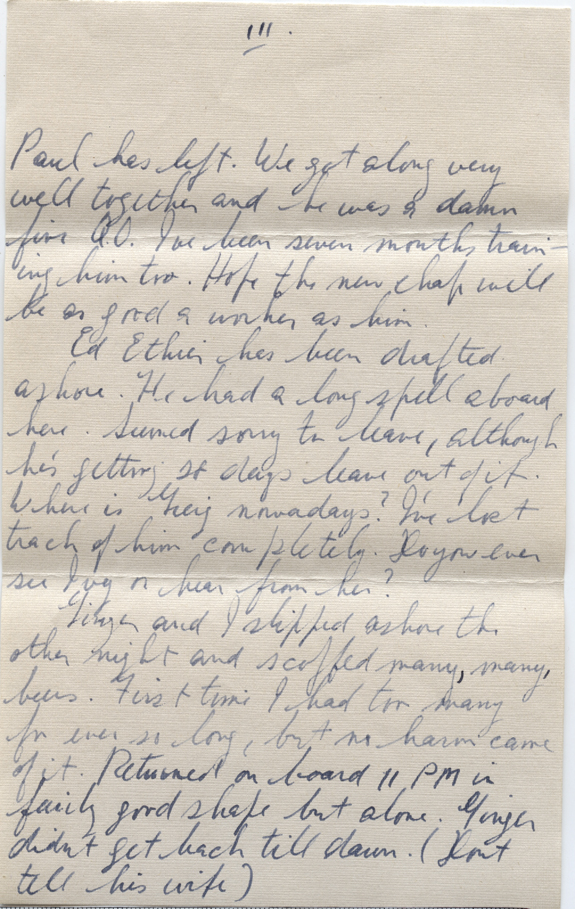 III.
Paul has left. We got along very
well together and he was a damn
fine A.O. I've been seven months train-
ing him too. Hope the new chap will
be as good a worker as him.
Ed Ethier has been drafted
ashore. He had a long spell aboard
here. Seemed sorry to leave, although
he's getting 28 days leave out of it.
Where is Greig nowadays? I've lost
track of him completely. Do you ever
see Ivy or hear from her?
Ginger and I slipped ashore the
other night and scoffed many, many,
beers. First time I had too many
for ever so long, but no harm came
of it. Returned on board 11 PM in
fairly good shape but alone. Ginger
didn't get back till dawn. (Dont
tell his wife)